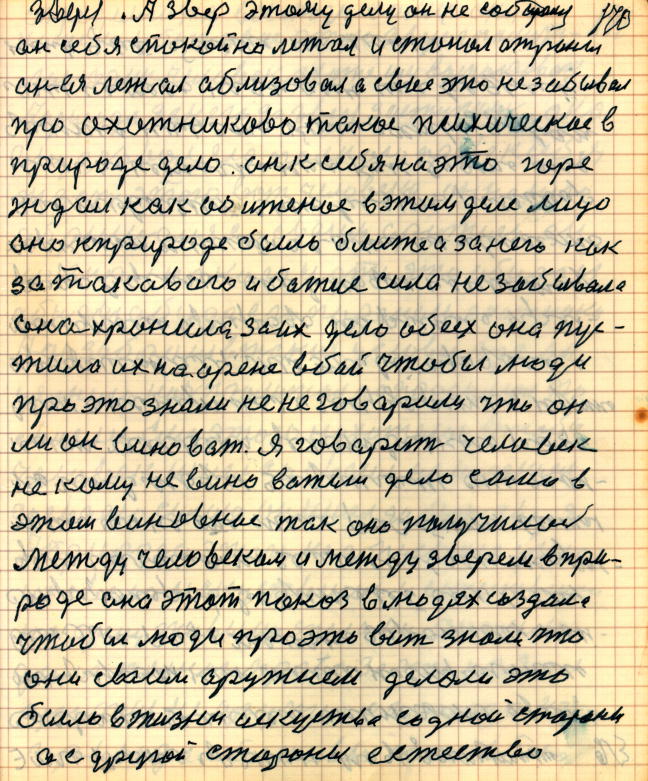 зверя. А звер этому делу он не соберал 170
он себя спокойно летал и стонал
он ея лежал аблизовала свае это не забывал
про охотниково такое психическое в
природе дело. он к себя на это горе
ждал как обиженое в этом деле лицо
оно к природе было ближе а за него как
за такавого и божие сила не забывала
она хронила за их дело обеех она пус-
тила их на арене в бой чтобы люди
про это знали не не говарили что он
ли он виноват. я говарит человек
не кому не вино ватыи дело само в
этом виновное так оно получилос
между человеком и между зверем в при-
роде она этот показ в людях создала
чтобы люди про это вит знали что
они сваим аружием делали это
было в жизни искуства содной стороны
а с другой стороны естество